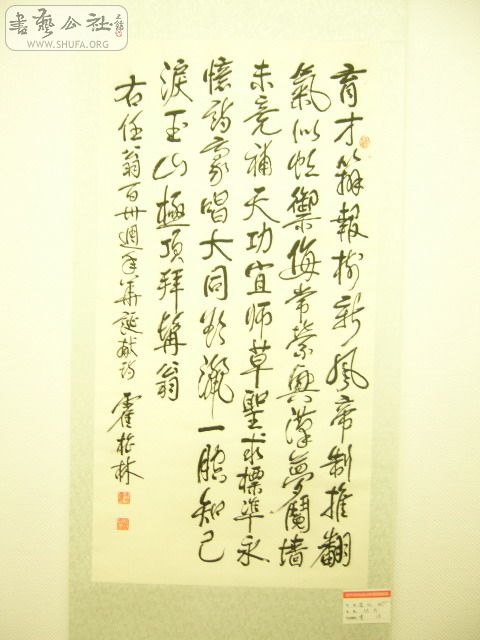 書藝公社
WWW.SHUFA.ORG
育才辦報樹新風帝制推翻
氣似虹禦侮常縈興漢夢鬩墻
未竟補天功宜師草聖求標準永
憶詩豪唱大同欲灑一腔知己
淚玉山極頂拜髯翁
右任翁百卅週年華誕献詩 霍松林